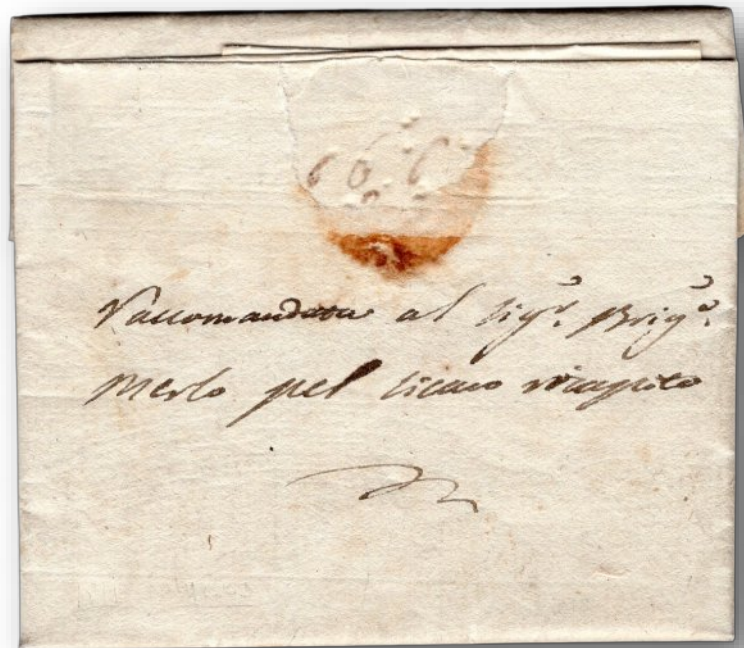 Raccomandata al Sigr. Brigr.
Merlo pel sicuro ricapito